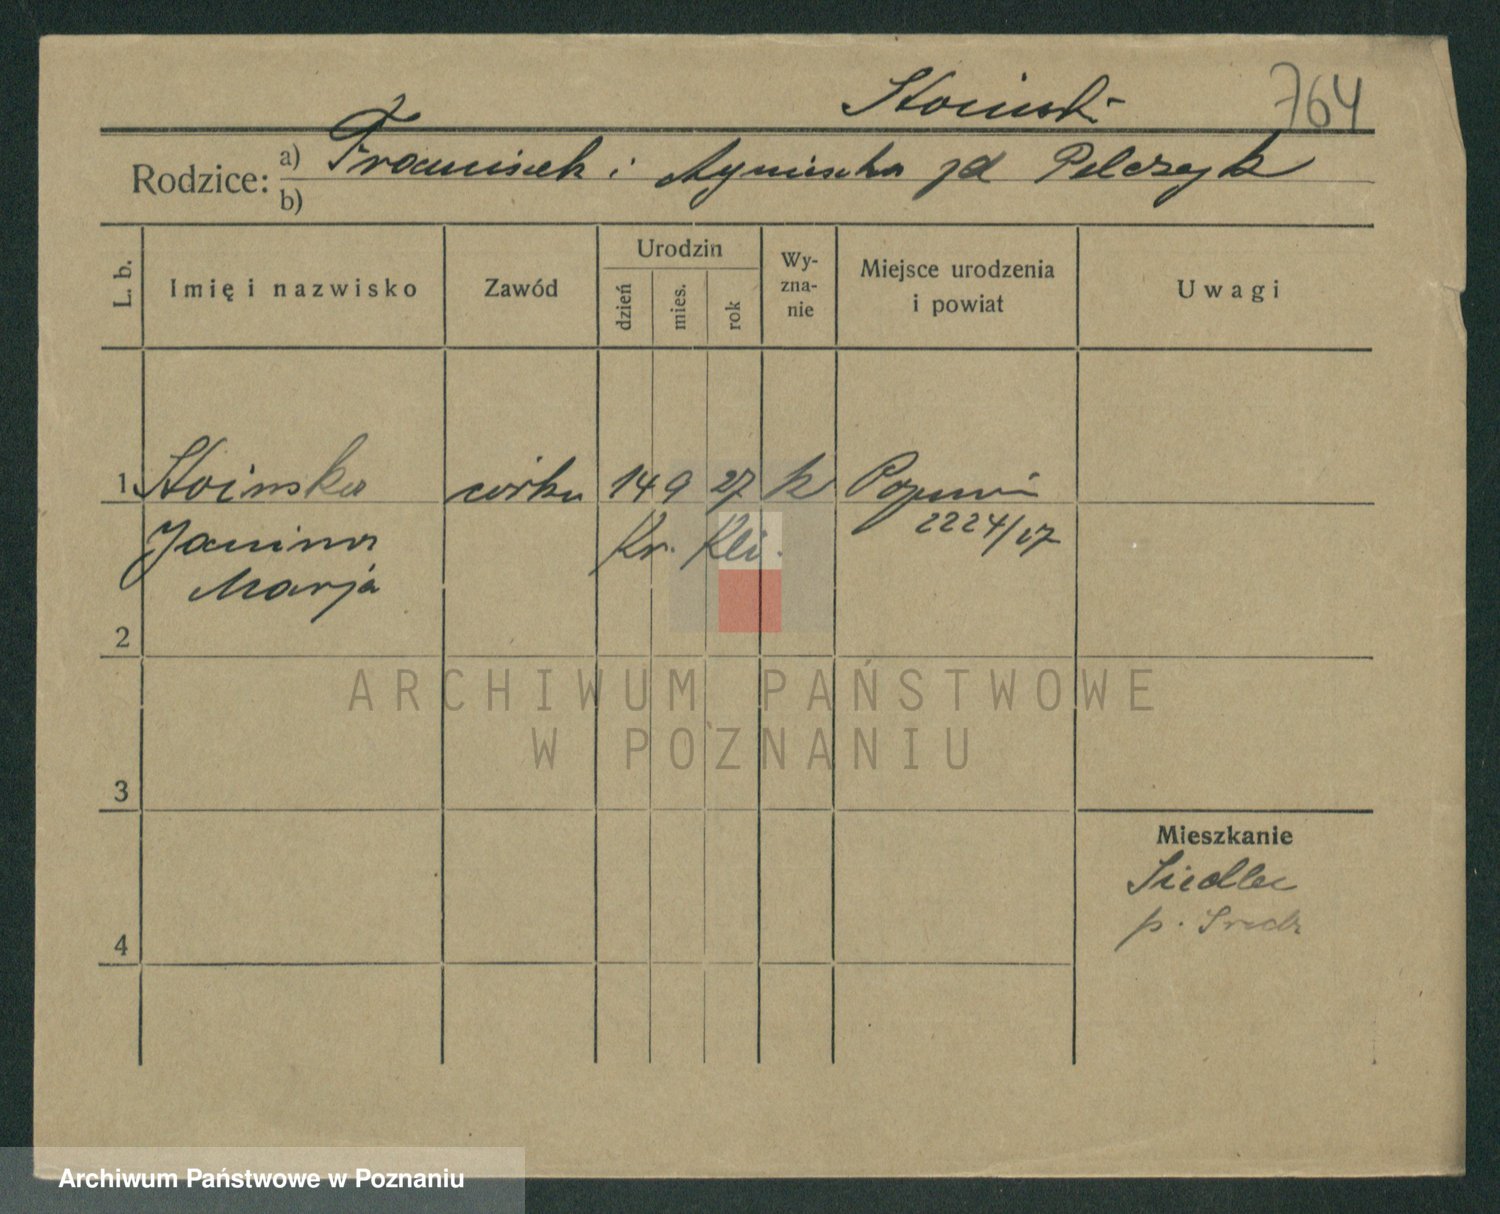 Stoinski
764
Rodzice: a) Franciszek i Agnieszka zd Pelczyk
b)
L. b. Imię i nazwisko Zawód Urodzin dzień mies. rok Wyznanie Miejsce urodzenia i powiat Uwagi
1 Stoinska córka 14 9 27 k Poznań
Janina Kr. Kli. 2224/27
Marja
2
ARCHIWUM PAŃSTWOWE
W POZNANIU
3
Mieszkanie
Siedlec
p. Środa
4
Archiwum Państwowe w Poznaniu